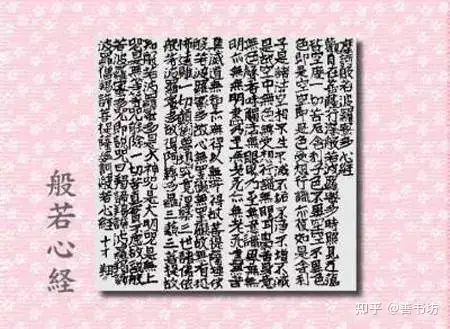 摩訶般若波羅蜜多心経
観自在菩薩行深般若波羅蜜多時照見五蘊
皆空度一切苦厄舎利子色不異空空不異色
色即是空空即是色受想行識亦復如是舎利
子是諸法空相不生不滅不垢不浄不増不減
是故空中無色無受想行識無眼耳鼻舌身意
無色声香味触法無眼界乃至無意識界無無
明亦無無明尽乃至無老死亦無老死尽無苦
集滅道無智亦無得以無所得故菩提薩埵依
般若波羅蜜多故心無罣礙無罣礙故無有恐
怖遠離一切顛倒夢想究竟涅槃三世諸仏依
般若波羅蜜多故得阿耨多羅三藐三菩提故
知般若波羅蜜多是大神呪是大明呪是無上
呪是無等等呪能除一切苦真実不虚故説般
若波羅蜜多呪即説呪曰羯諦羯諦波羅羯諦
波羅僧羯諦菩提薩婆訶般若心経 十才 翔
般若心経
知乎 @善书坊